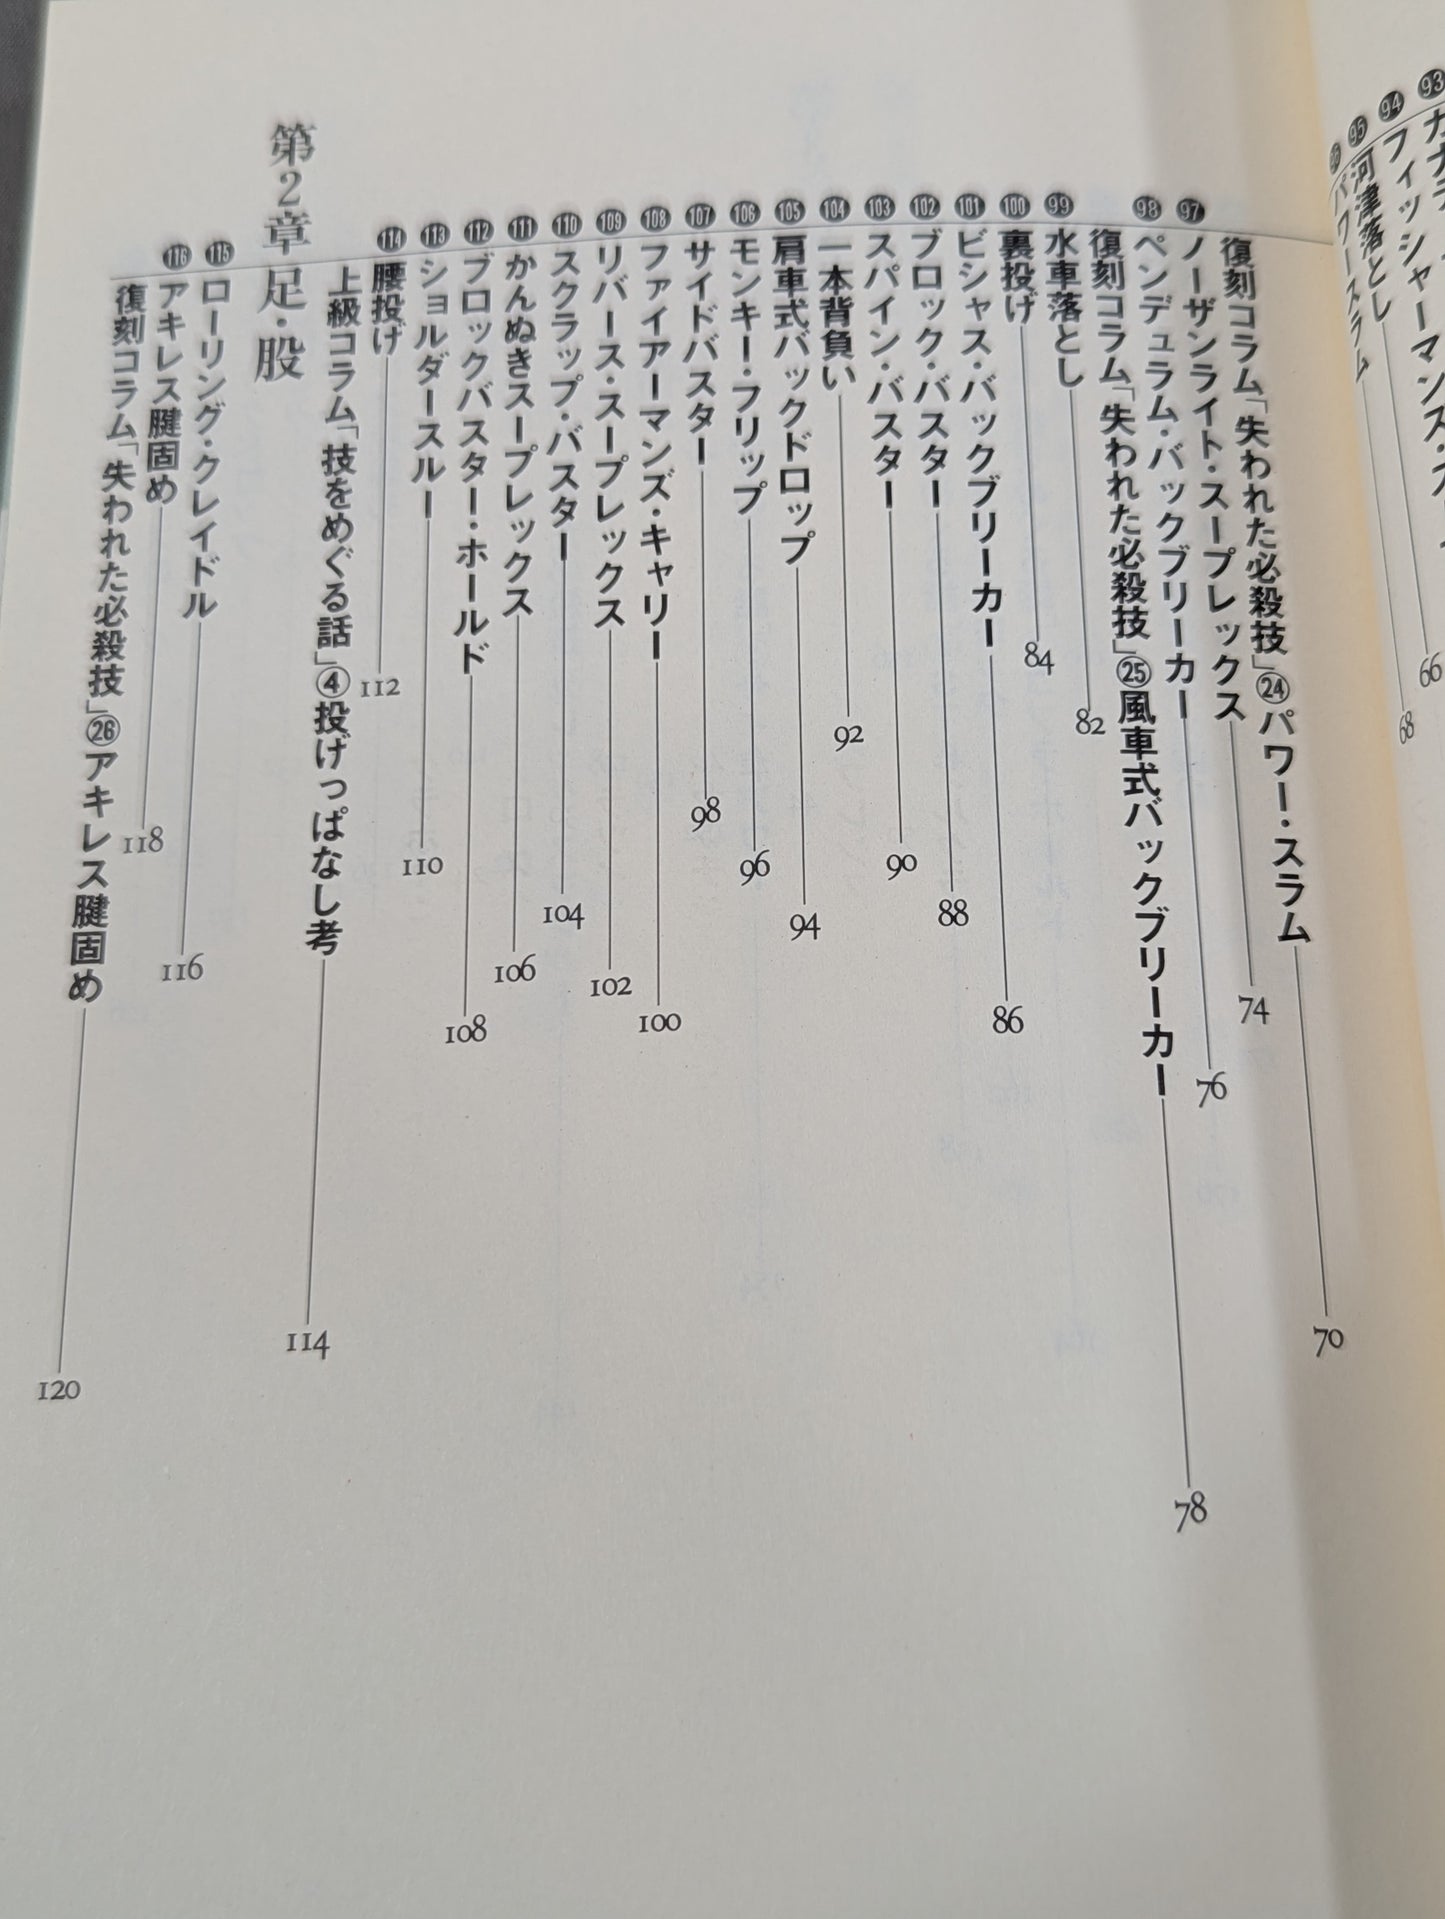 94 フィッシャーマンズ・
68
95 河津落とし
パワースラム
66
復刻コラム「失われた必殺技」㉔パワー・スラム 70
97 ノーザンライト・スープレックス 74
98 ペンデュラム・バックブリーカー 76
復刻コラム「失われた必殺技」㉕風車式バックブリーカー 78
99 水車落とし 82
100 裏投げ 84
101 ビシャス・バックブリーカー 86
102 ブロック・バスター 88
103 スパイン・バスター 90
104 一本背負い 92
105 肩車式バックドロップ 94
106 モンキー・フリップ 96
107 サイドバスター 98
108 ファイアーマンズ・キャリー 100
109 リバース・スープレックス 102
110 スクラップ・バスター 104
111 かんぬきスープレックス 106
112 ブロックバスター・ホールド 108
113 ショルダースルー 110
114 腰投げ 112
上級コラム「技をめぐる話」④投げっぱなし考 114
第2章 足・股
115 ローリング・クレイドル 116
116 アキレス腱固め 118
復刻コラム「失われた必殺技」㉖アキレス腱固め 120